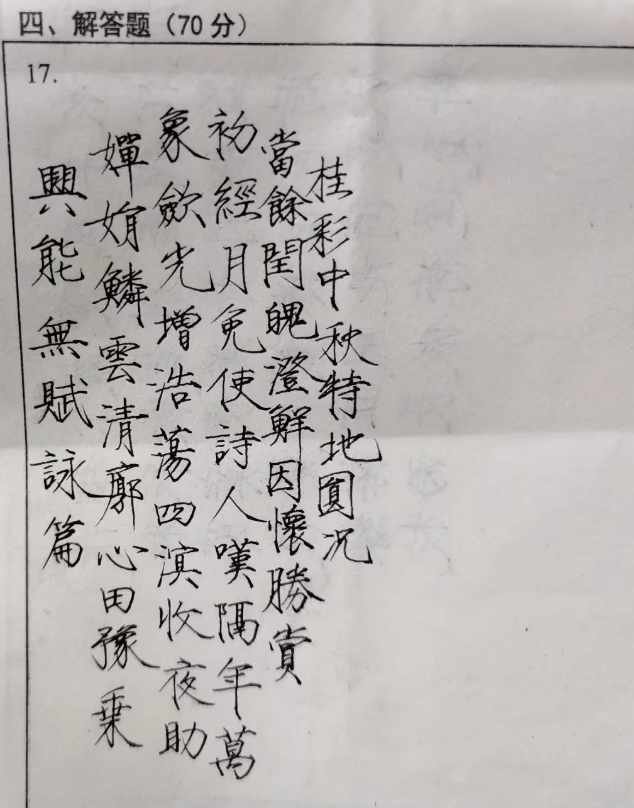 四、解答题（70分）
17.
桂彩中秋特地圓况
當餘閏魄澄鮮因懷勝賞
初經月免使詩人嘆隔年萬
象歛光增浩蕩四溟收夜助
嬋娟鱗雲清廓心田豫乘
興能無賦詠篇